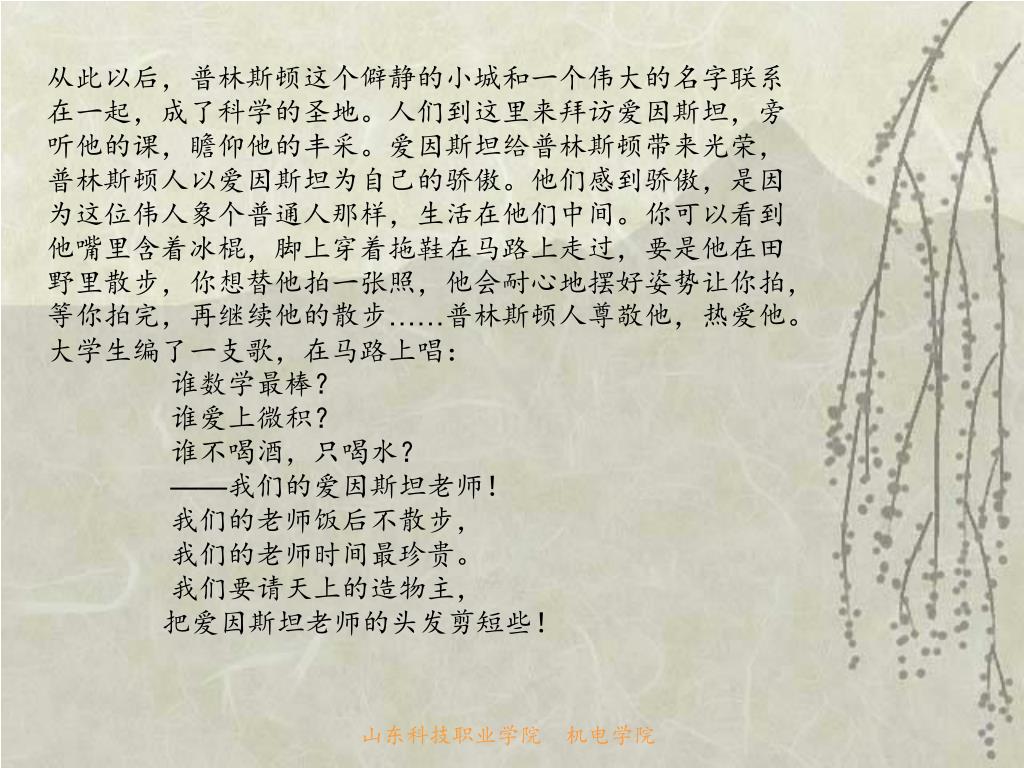 从此以后，普林斯顿这个僻静的小城和一个伟大的名字联系
在一起，成了科学的圣地。人们到这里来拜访爱因斯坦，旁
听他的课，瞻仰他的丰采。爱因斯坦给普林斯顿带来光荣，
普林斯顿人以爱因斯坦为自己的骄傲。他们感到骄傲，是因
为这位伟人象个普通人那样，生活在他们中间。你可以看到
他嘴里含着冰棍，脚上穿着拖鞋在马路上走过，要是他在田
野里散步，你想替他拍一张照，他会耐心地摆好姿势让你拍，
等你拍完，再继续他的散步……普林斯顿人尊敬他，热爱他。
大学生编了一支歌，在马路上唱：
谁数学最棒？
谁爱上微积？
谁不喝酒，只喝水？
——我们的爱因斯坦老师！
我们的老师饭后不散步，
我们的老师时间最珍贵。
我们要请天上的造物主，
把爱因斯坦老师的头发剪短些！
山东科技职业学院 机电学院